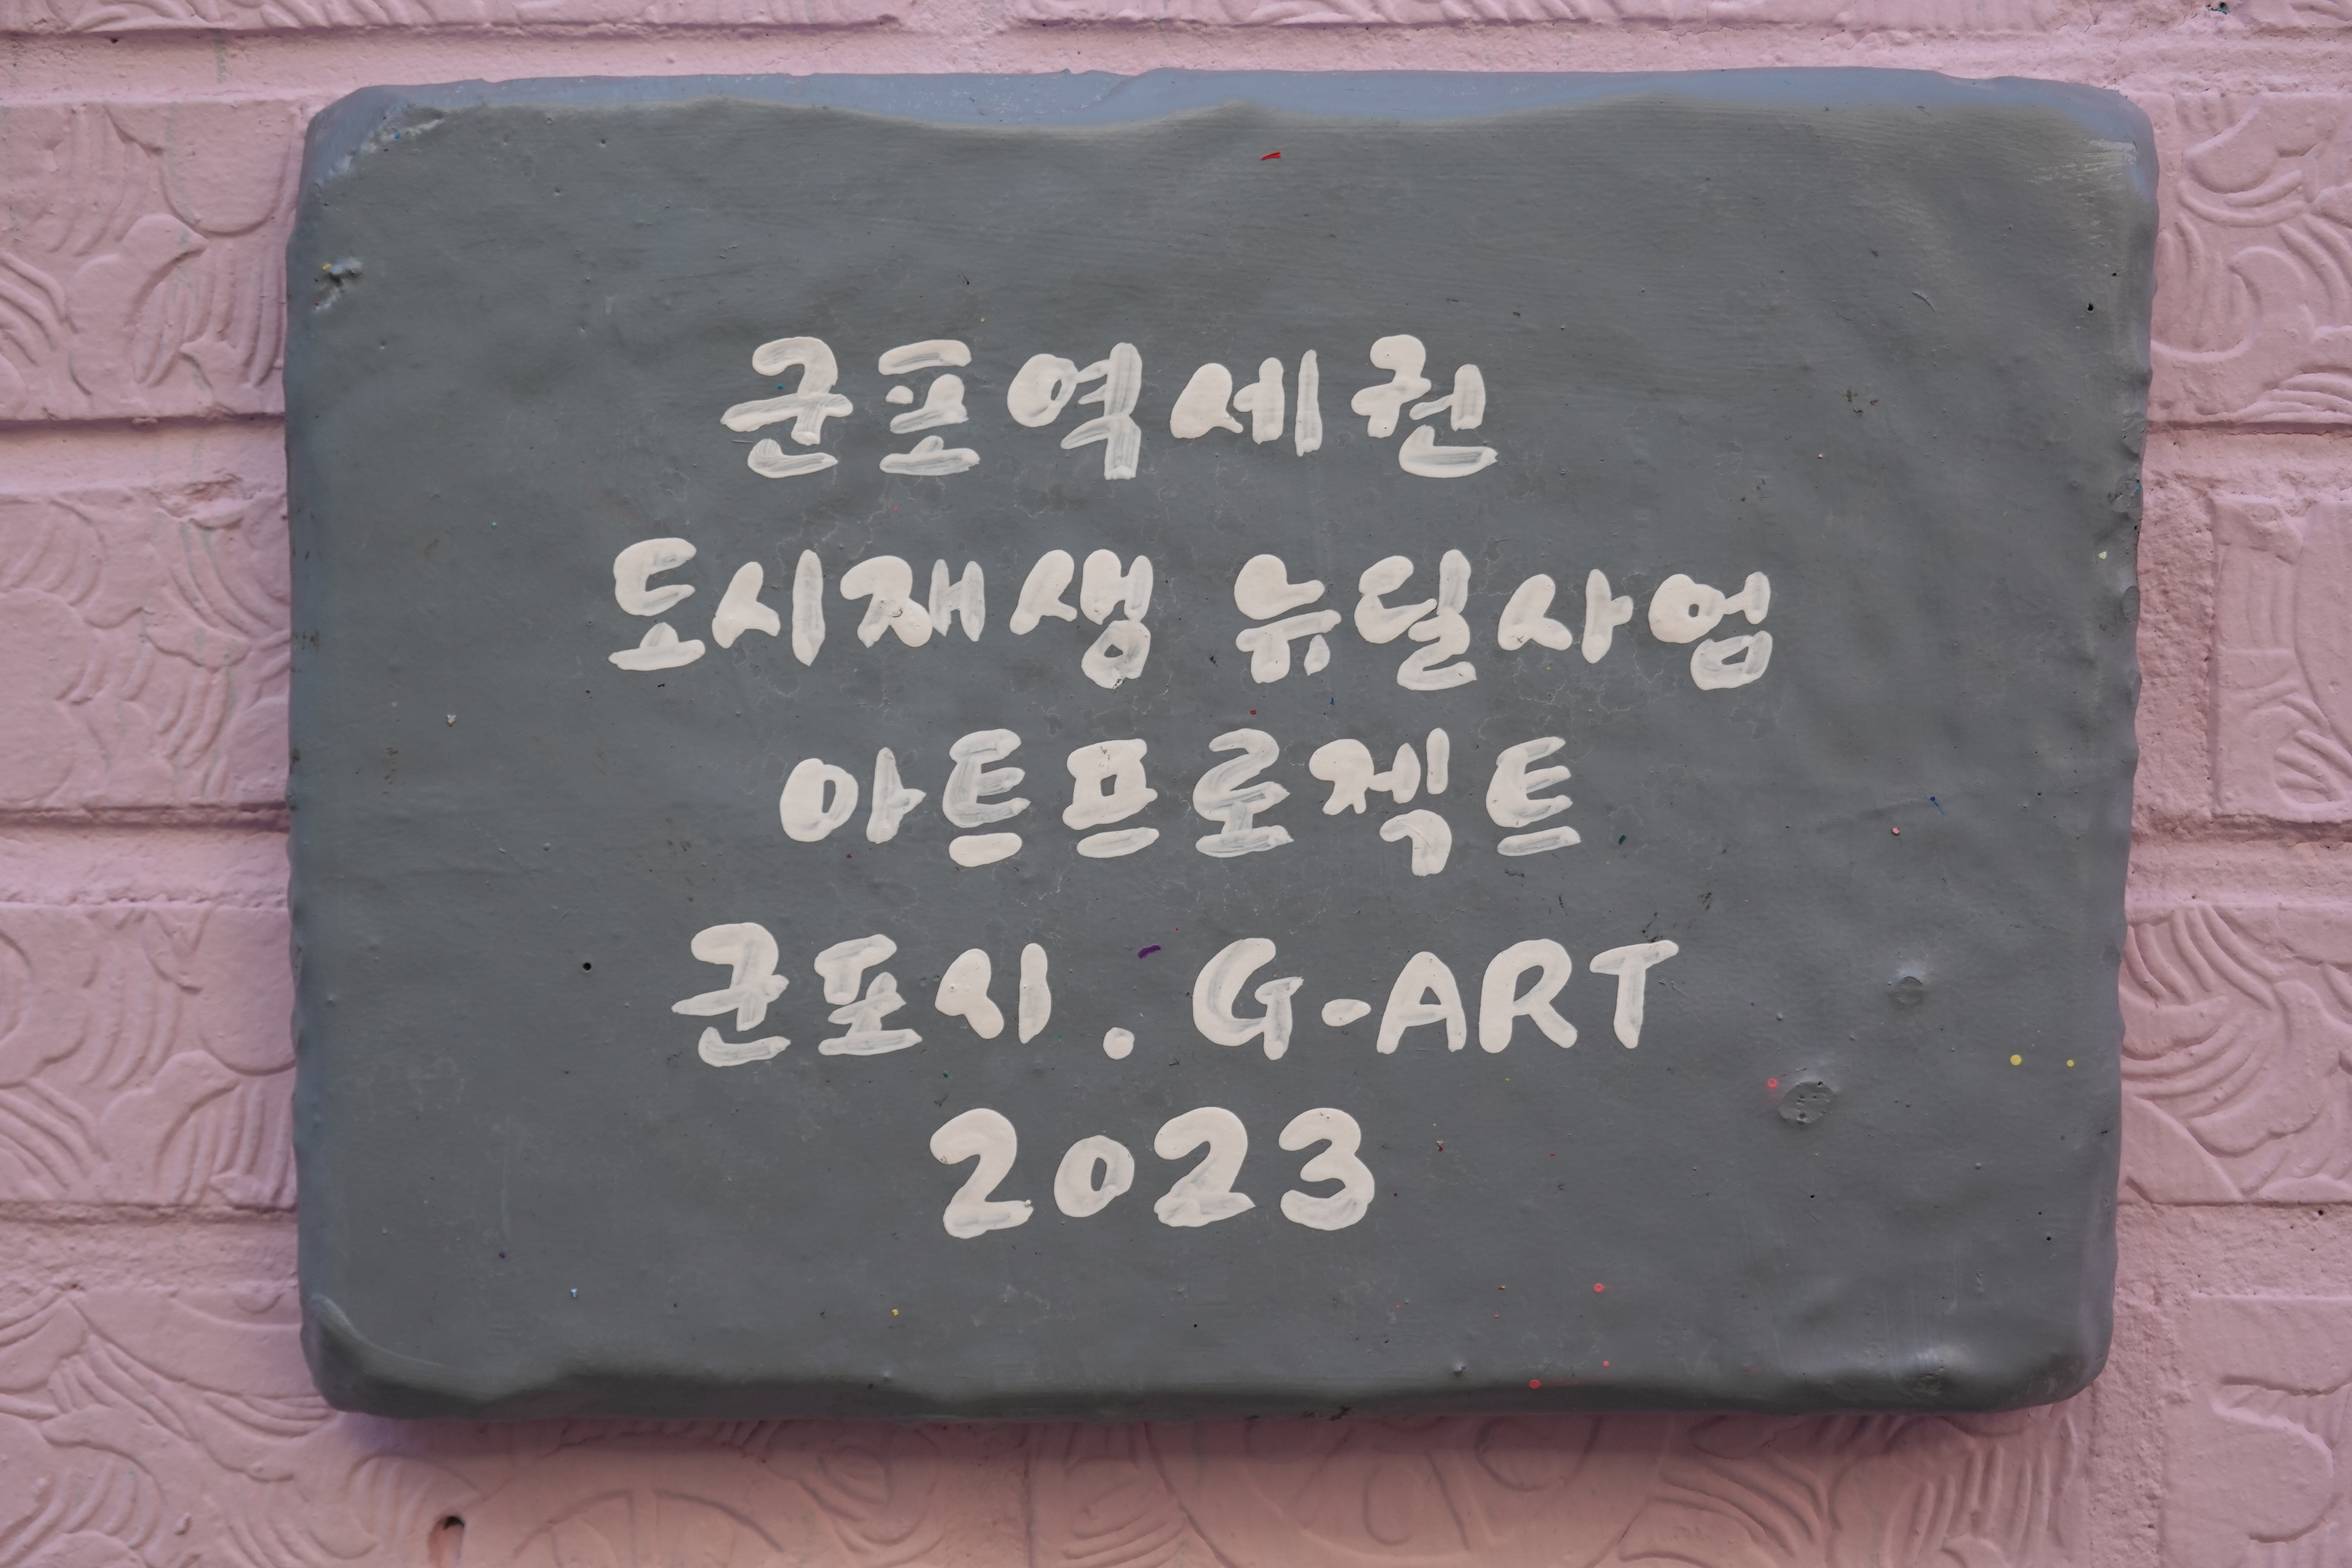 군포역세권
도시재생 뉴딜사업
아트프로젝트
군포시. G-ART
2023